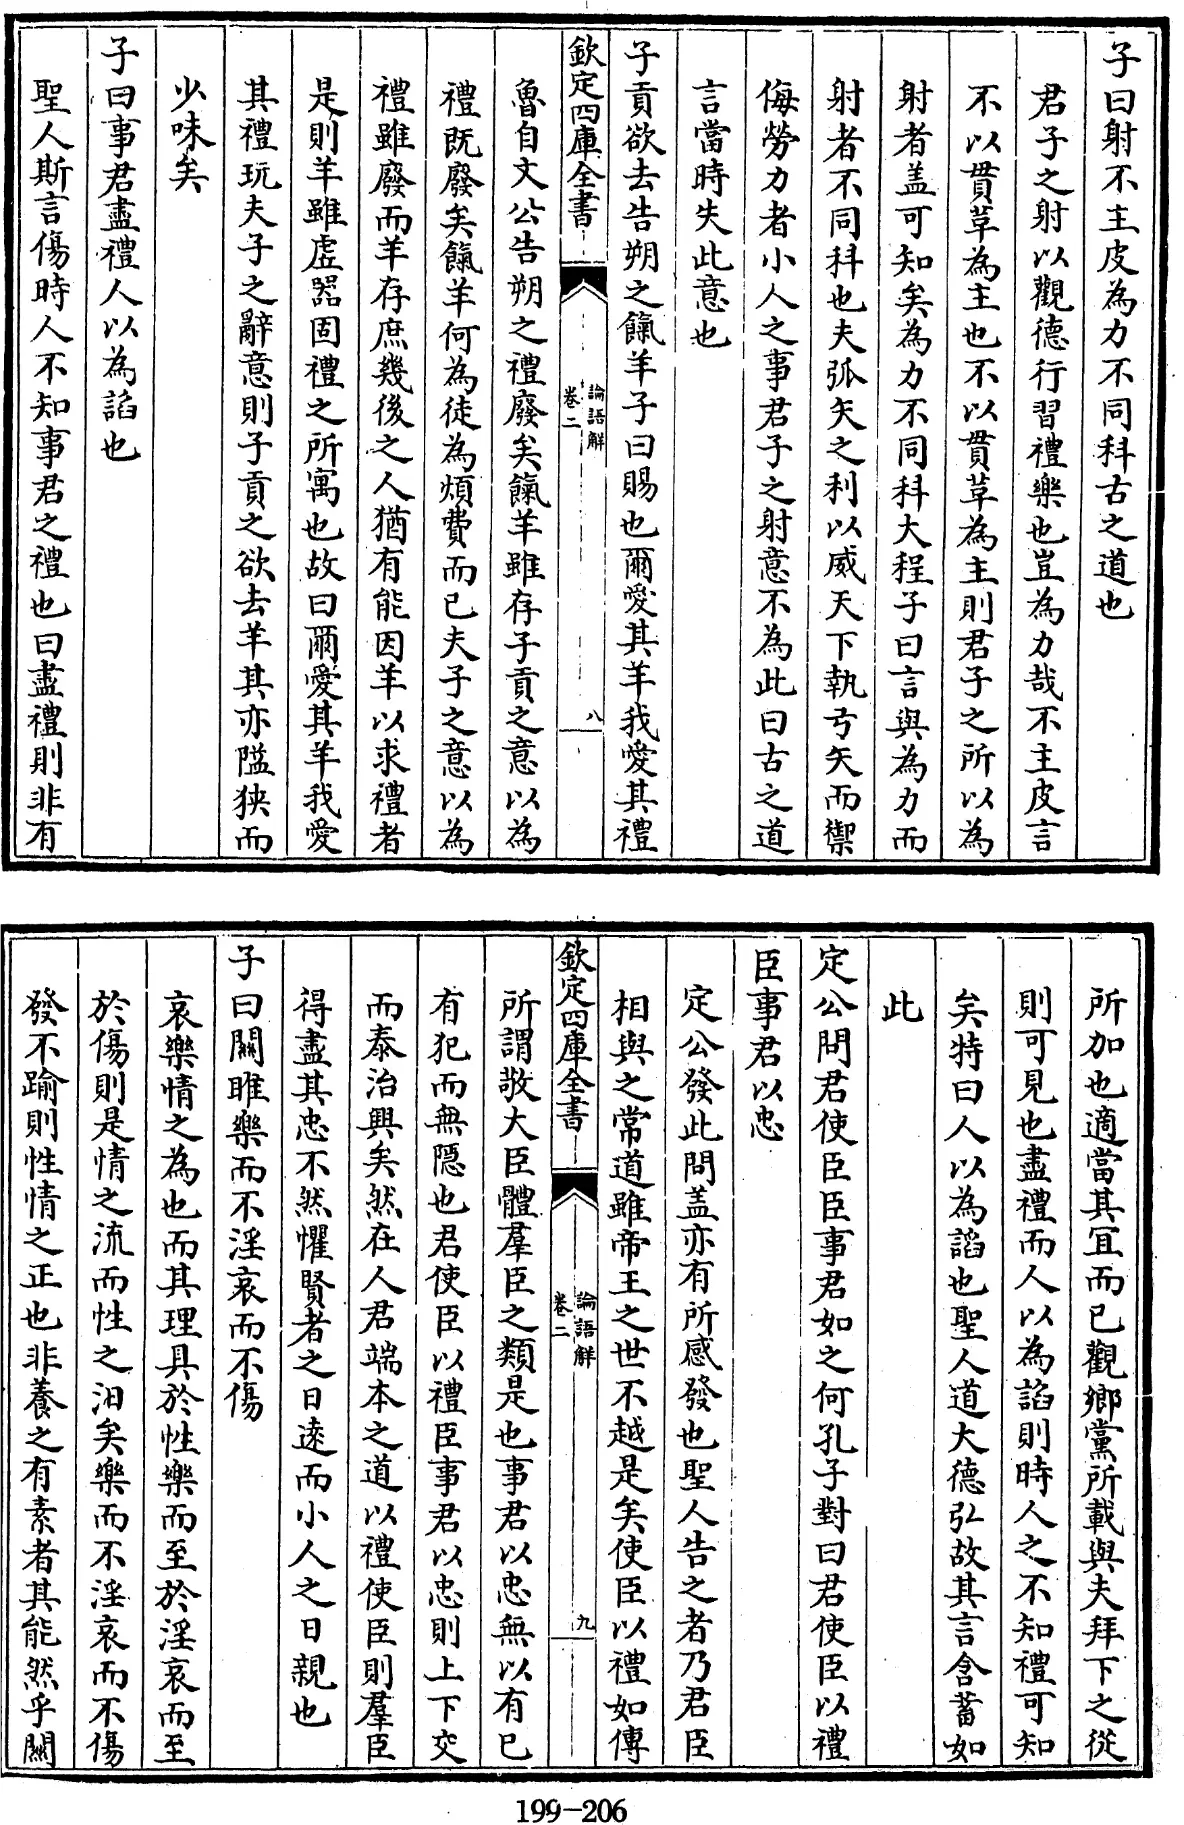 子曰射不主皮為力不同科古之道也
君子之射以觀德行習禮樂也豈為力哉不主皮言
不以貫革為主也不以貫革為主則君子之所以為
射者盖可知矣為力不同科大程子曰言與為力而
射者不同科也夫弧矢之利以威天下執弓矢而禦
侮勞力者小人之事君子之射意不為此曰古之道
言當時失此意也
子貢欲去告朔之餼羊子曰賜也爾愛其羊我愛其禮
欽定四庫全書
論語解
卷二
八
魯自文公告朔之禮廢矣餼羊雖存子貢之意以為
禮既廢矣餼羊何為徒為煩費而已夫子之意以為
禮雖廢而羊存庶幾後之人猶有能因羊以求禮者
是則羊雖虛器固禮之所寓也故曰爾愛其羊我愛
其禮玩夫子之辭意則子貢之欲去羊其亦隘狹而
少味矣
子曰事君盡禮人以為諂也
聖人斯言傷時人不知事君之禮也曰盡禮則非有
所加也適當其宜而已觀鄉黨所載與夫拜下之從
則可見也盡禮而人以為諂則時人之不知禮可知
矣特曰人以為諂也聖人道大德弘故其言含蓄如
此
定公問君使臣臣事君如之何孔子對曰君使臣以禮
臣事君以忠
定公發此問盖亦有所感發也聖人告之者乃君臣
相與之常道雖帝王之世不越是矣使臣以禮如傳
欽定四庫全書
論語解
卷二
九
所謂敬大臣體羣臣之類是也事君以忠無以有己
有犯而無隱也君使臣以禮臣事君以忠則上下交
而泰治興矣然在人君端本之道以禮使臣則羣臣
得盡其忠不然懼賢者之日遠而小人之日親也
子曰關雎樂而不淫哀而不傷
哀樂情之為也而其理具於性樂而至於淫哀而至
於傷則是情之流而性之汩矣樂而不淫哀而不傷
發不踰則性情之正也非養之有素者其能然乎關
199-206